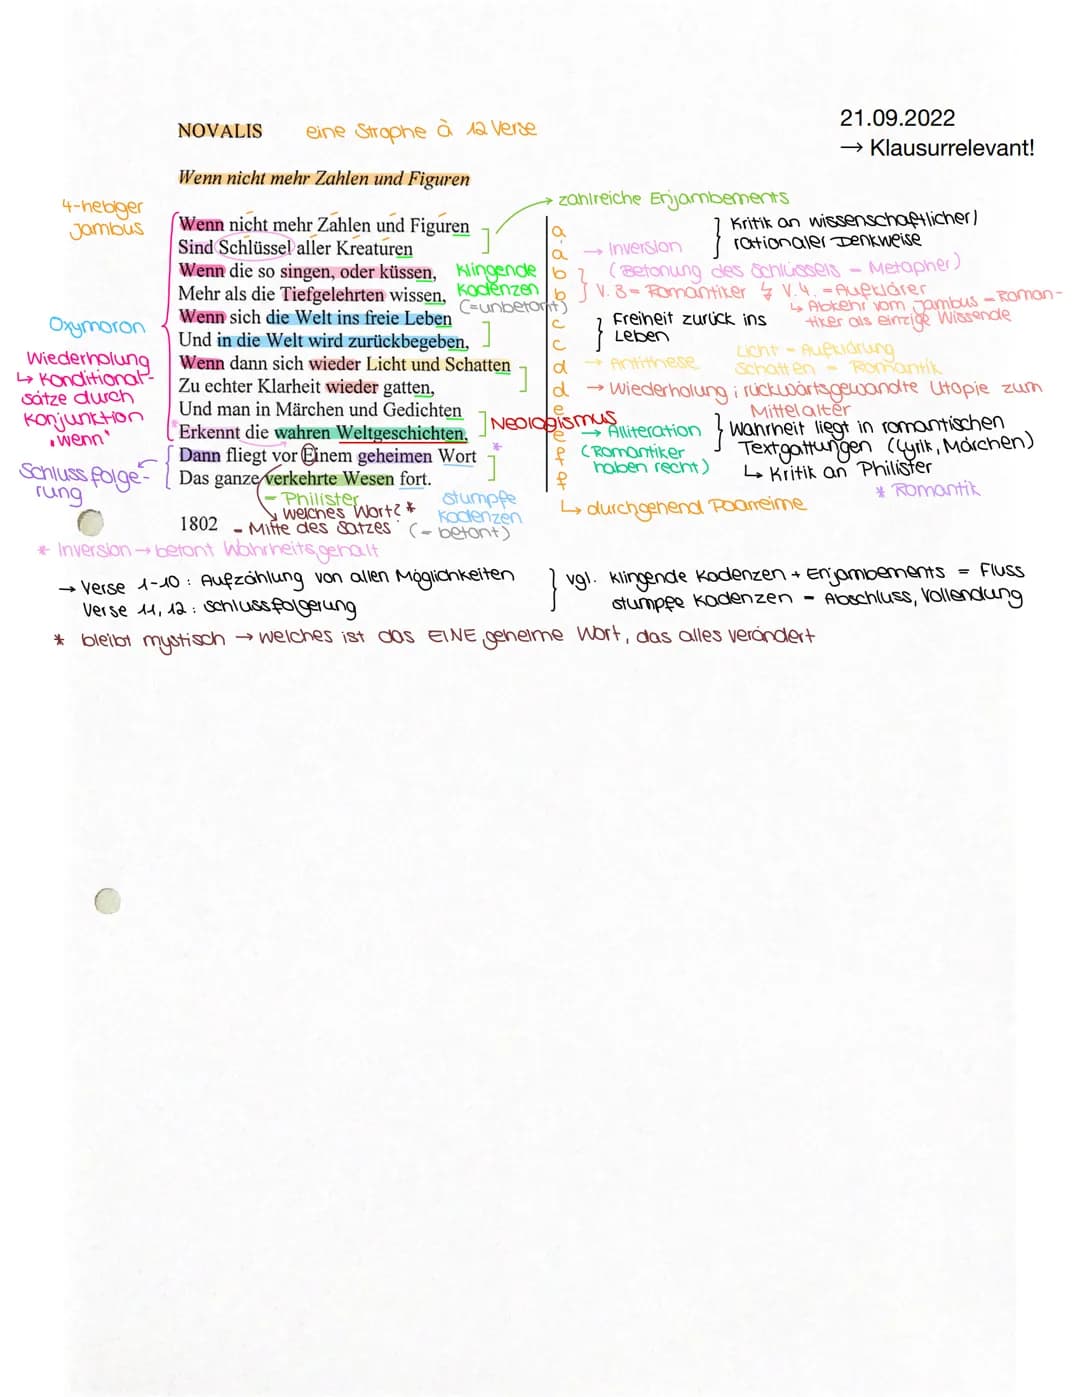 21.09.2022
→ Klausurrelevant!
NOVALIS
eine Strophe à 12 Verse
Wenn nicht mehr Zahlen und Figuren
4-hebiger
Jambus
→ zahlreiche Enjambements
Wenn nicht mehr Zahlen und Figuren
Sind Schlüssel aller Kreaturen
Wenn die so singen, oder küssen,
Mehr als die Tiefgelehrten wissen,
Wenn sich die Welt ins freie Leben
Und in die Welt wird zurückbegeben,
Wenn dann sich wieder Licht und Schatten
Zu echter Klarheit wieder gatten,
Und man in Märchen und Gedichten
Erkennt die wahren Weltgeschichten,
Dann fliegt vor Einem geheimen Wort
Das ganze verkehrte Wesen fort.
1802
Klingende
Kadenzen
(=unbetont)
Oxymoron
Wiederholung
↳ Konditional-
sätze durch
Konjunktion
"wenn"
Schlussfolge-
rung
a
a
b
b
c
c
d
d
e
e
f
f
→ Inversion
} Kritik an wissenschaftlicher/
rationaler Denkweise
(Betonung des Schlüssels = Metapher)
} V. 3 = Romantiker ↯ V. 4. = Aufklärer
↳ Abkehr vom Jambus = Roman-
tiker als einzige Wissende
} Freiheit zurück ins
Leben
→ Antithese
Licht = Aufklärung
Schatten = Romantik
→ Wiederholung; rückwärtsgewandte Utopie zum
Mittelalter
Neologismus
*
→ Alliteration
(Romantiker
haben recht)
} Wahrheit liegt in romantischen
Textgattungen (Lyrik, Märchen)
↳ Kritik an Philister
* Romantik
↳ durchgehend Paarreime
= Philister
↳ welches Wort? *
= Mitte des Satzes
stumpfe
Kadenzen
(= betont)
* Inversion → betont Wahrheitsgehalt
→ Verse 1-10: Aufzählung von allen Möglichkeiten
Verse 11, 12: Schlussfolgerung
} vgl. klingende Kadenzen + Enjambements = Fluss
stumpfe Kadenzen = Abschluss, Vollendung
* bleibt mystisch → welches ist das EINE geheime Wort, das alles verändert